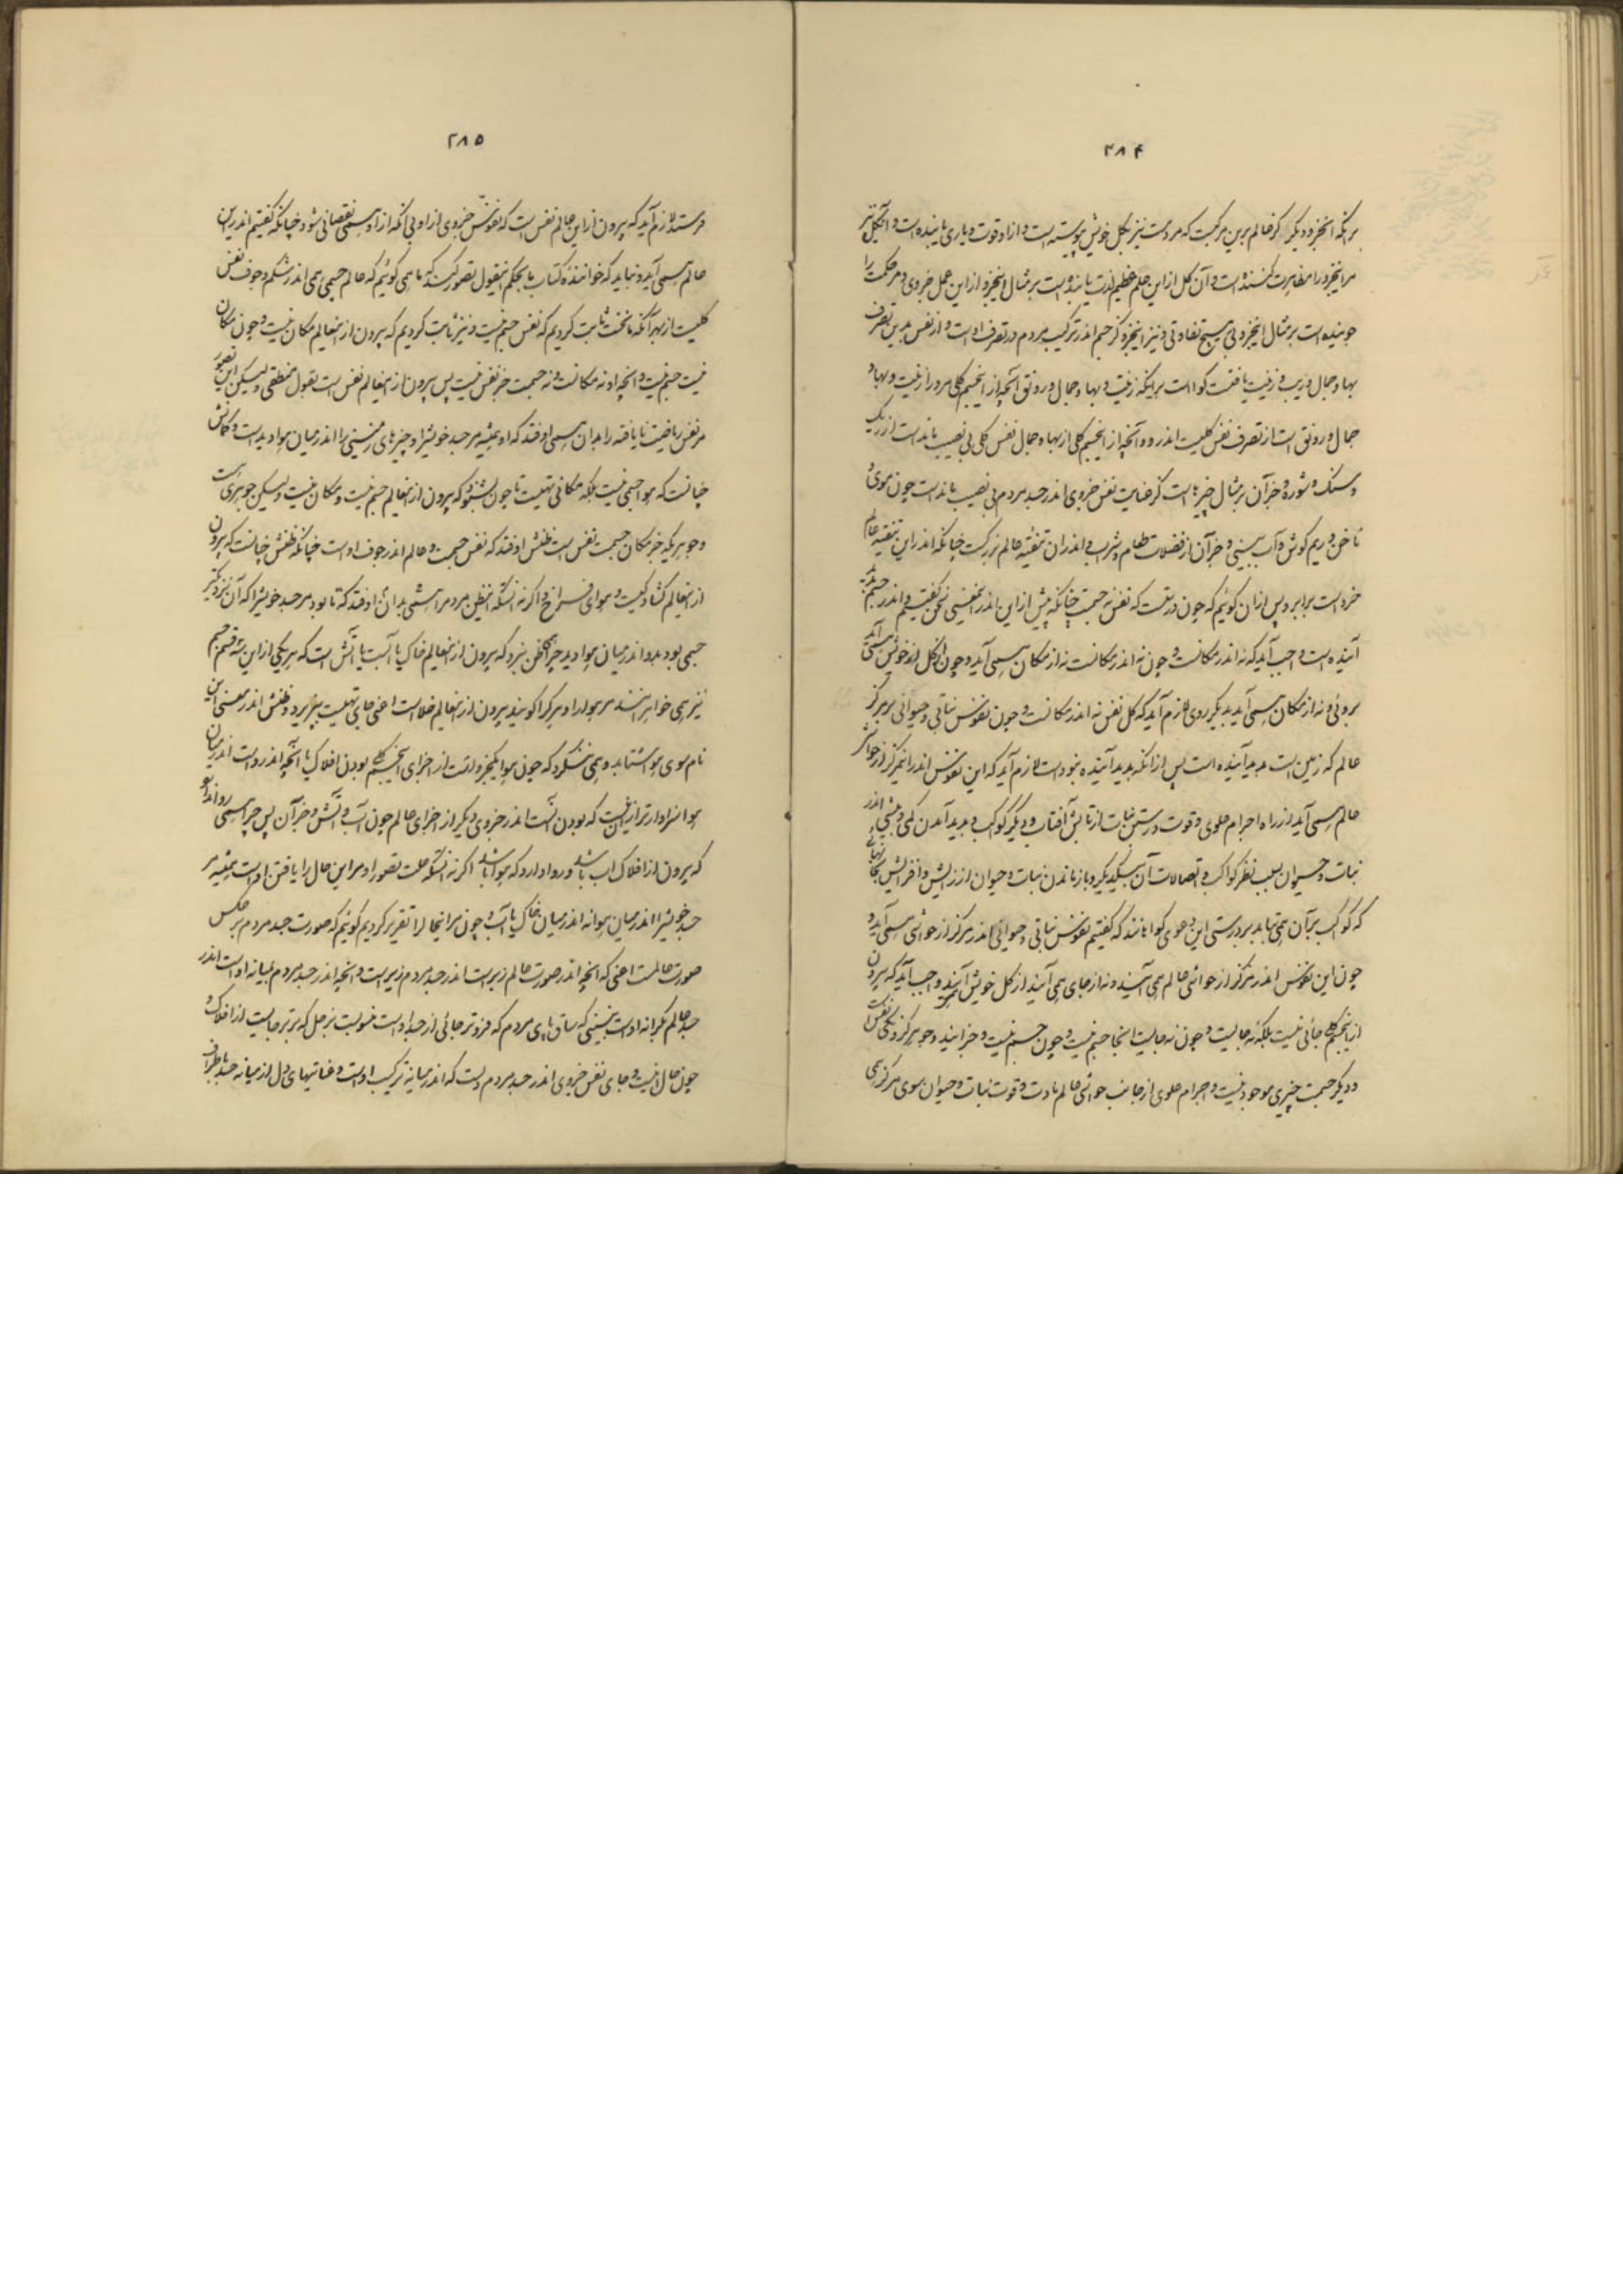 ۲۸۴
بر آنکه این جزو دیگر کز عالم برین مرکبست که مردمست نیز بکل خویش پیوسته است و ازو قوت و یاری یابنده است و آن کل نیز
مر این جزو را مفابرت کننده است و آن کل از این جلم عظیم لذت یابنده است بر مثال این جزو از این عمل جزوی و مر حکمت را
جوینده است بر مثال این جزو بی هیچ تفاوتی و نیز این جزو کز جسم اندر ترکیب مردم در تصرف اوست و از نفس بدین تصرف
بها و جمال و زیب و زینت یافتست گواست بر اینکه زینت و بها و جمال و رونق آنچه از این جسم کلی مرو را زینت و بها و
جمال و رونق است از تصرف نفس کلیست اندرو و آنچه از این جسم کلی از بها و جمال نفس کلی بی نصیب مانده است از ریگ
و سنگ و شوره و جز آن بر مثال چیزهاست کز عنایت نفس جزوی اندر جسد مردم بی نصیب مانده است چون موی و
ناخن و ریم گوش و آب بینی و جز آن از فضلات طعام و شراب و اندران تنقیه عالم بزرگست چنانکه اندر این تنقیه عالم
خرد است برابر و پس از آن گوئیم که چون درستست که نفس نه جسمست چنانکه پیش از این اندر این معنی سخن گفتیم و اندر جسم پدید
آینده است واجب آید که نه اندر مکانست و چون نه اندر مکانست نه از مکان همی آید و چون از کل خویش همی آید
بروئی و نه از مکان همی آید بدیگر روی لازم آید که کل نفس نه اندر مکانست و چون نفوس نباتی و حیوانی بر مرکز
عالم که زمین است پدید آینده است پس از آنکه پدید آینده نبوده است لازم آید که این نفوس اندر این مرکز از حواشی
عالم همی آید از راه اجرام علوی و قوت و رستن نبات از تابش آفتاب و دیگر کواکب و پدید آمدن کمی و بیشی اندر
نبات و حیوان بسبب نظر کواکب و اتصالات آن بیکدیگر و باز ماندن نبات و حیوان از زایش و افزایش بجایهائی
که کواکب بر آن همی نتابد بر درستی این دعوی گوا مانند که گفتیم نفوس نباتی و حیوانی اندر مرکز از حواشی همی آید و
چون این نفوس اندر مرکز از حواشی عالم همی آیند و نه از جای همی آیند از کل خویش آیند واجب آید که بیرون
از این جسم کلی جائی نیست بلکه نه جایست و چون نه جایست آنجا جسم نیست و چون جسم نیست و جز این دو جوهر که یکی نفس است
و دیگر جسمست چیزی موجود نیست و اجرام علوی از جانب حواشی عالم مادت و قوت نبات و حیوان سوی مرکز همی
۲۸۵
فرستد لازم آید که بیرون از این عالم نفس است که نفوس جزوی ازو بی آنکه ازو همی نقصانی شود چنانکه گفتیم اندرین
عالم همی آید و نباید که خواننده کتاب ما بحکم این قول تصور کند که ما همی گوئیم که عالم جسمی همی اندر شکم و جوف نفس
کلیست از بهر آنکه ما نخست ثابت کردیم که نفس جسم نیست و نیز ثابت کردیم که بیرون از این عالم مکان نیست و چون مکان
نیست جسم نیست و آنچه او نه مکانست و نه جسمست جز نفس نیست پس بیرون از این عالم نفس است بقول منطقی ولیکن این تصور
مر نفس ریاضت نایافته را بدان همی اوفتد که او همیشه مر جسد خویش را و چیزهای زمینی را اندر میان هوا دیده است و گمانش
چنانست که هوا جسمی نیست بلکه مکانی تهیست تا چون بشنود که بیرون از این عالم جسم نیست و مکان نیست ولیکن جوهریست
و جوهریکه جز مکان و جسمست نفس است ظنش اوفتد که نفس جسمست و عالم اندر جوف اوست چنانکه ظنش چنانست که بیرون
از این عالم گشادگیست و هوای فراخ و اگر نه آنستکه این ظن مردم را همی بدان اوفتد که تا بود مر جسد خویش را که آن نزدیکتر
جسمی بود بدو اندر میان هوا دید چرا همی ظن نبرد که بیرون از این عالم خاک یا آبست یا آتش است که هر یکی از این سه قسم جسم
نیز همی خواهر هستند مر هوا را و هر کرا گویند بیرون از این عالم خلاست اعنی جای تهیست بپذیرد و ظنش اندر معنی این
نام سوی هوا شتابد و همی ننگرد که چون هوا یک جزوست از اجزای این جسم کلی بودن افلاک با آنچه اندروست اندر میان
هوا سزاوارتر از این نیست که بودن آنست اندر جزوی دیگر از اجزای عالم چون آب و آتش و جز آن پس چرا همی روا ندارد
که بیرون از افلاک آب باشد و روا دارد که هوا باشد اگر نه آنستکه علت تصور او مر این حال را یافتن اوست همیشه مر
جسد خویش را اندر میان هوا نه اندر میان خاک یا آب و چون مر اینحال را تقریر کردیم گوئیم که صورت جسد مردم بر عکس
صورت عالمست اعنی که آنچه اندر صورت عالم زبر است اندر جسد مردم زیر است و آنچه اندر جسد مردم بمیانه اوست اندر
جسد عالم بکرانه اوست نبینی که ساق پای مردم که فروتر جائی از جسد اوست منسوبست بزحل که برتر جایست از افلاک و
چون حال اینست و جای نفس جزوی اندر جسد مردم دلست که اندر میانه ترکیب اوست و عنایتهای دل از میانه جسد باطراف